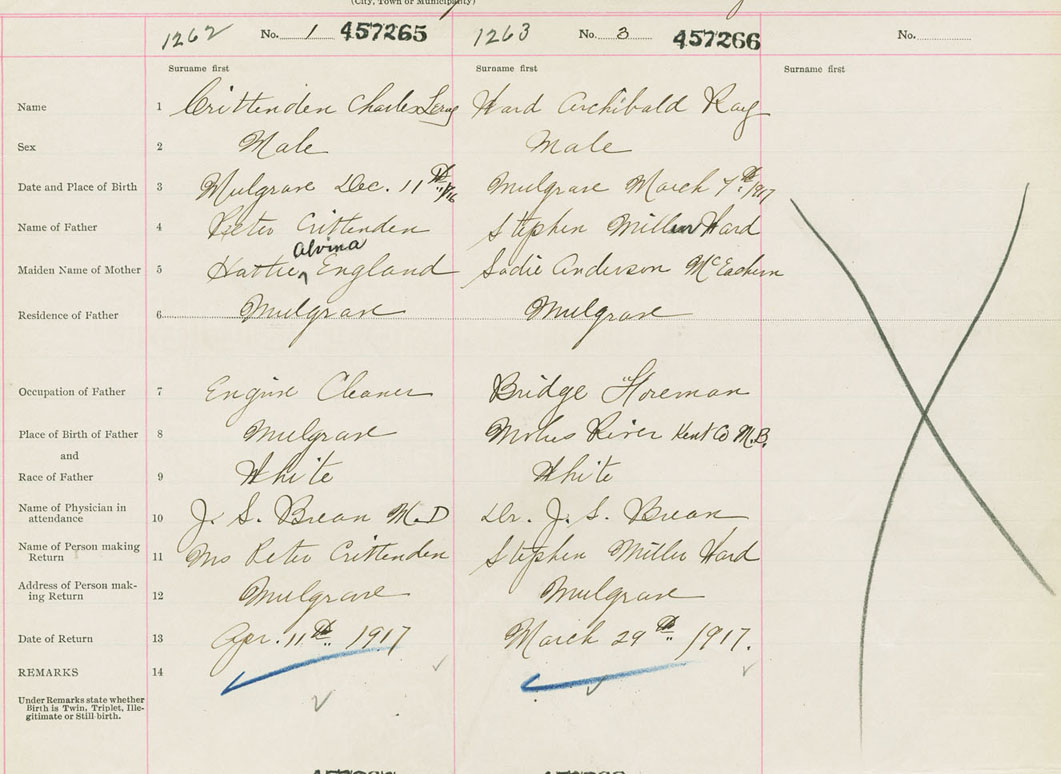 (City, Town or Municipality)
1262 No. 1 457265 1263 No. 3 457266 No.
Surname first Surname first Surname first
Name 1 Crittenden Charles Leroy Ward Archibald Ray
Sex 2 Male Male
Date and Place of Birth 3 Mulgrave Dec. 11th 1916 Mulgrave March 7th 1917
Name of Father 4 Peter Crittenden Stephen Miller Ward
Alvina
Maiden Name of Mother 5 Hattie ^ England Sadie Anderson McEachern
Residence of Father 6 Mulgrave Mulgrave
Occupation of Father 7 Engine Cleaner Bridge Foreman
Place of Birth of Father 8 Mulgrave River Kent Co N.B.
and
Race of Father 9 White White
Name of Physician in
attendance 10 J. S. Brean M.D Dr. J. S. Brean
Name of Person making
Return 11 Mrs Peter Crittenden Stephen Miller Ward
Address of Person mak-
ing Return 12 Mulgrave Mulgrave
Date of Return 13 Apr. 11th 1917 March 29th 1917.
REMARKS 14
Under Remarks state whether
Birth is Twin, Triplet, Ille-
gitimate or Still-birth.